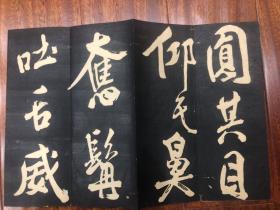 圓其目
仰其鼻
奮髯
吐舌威